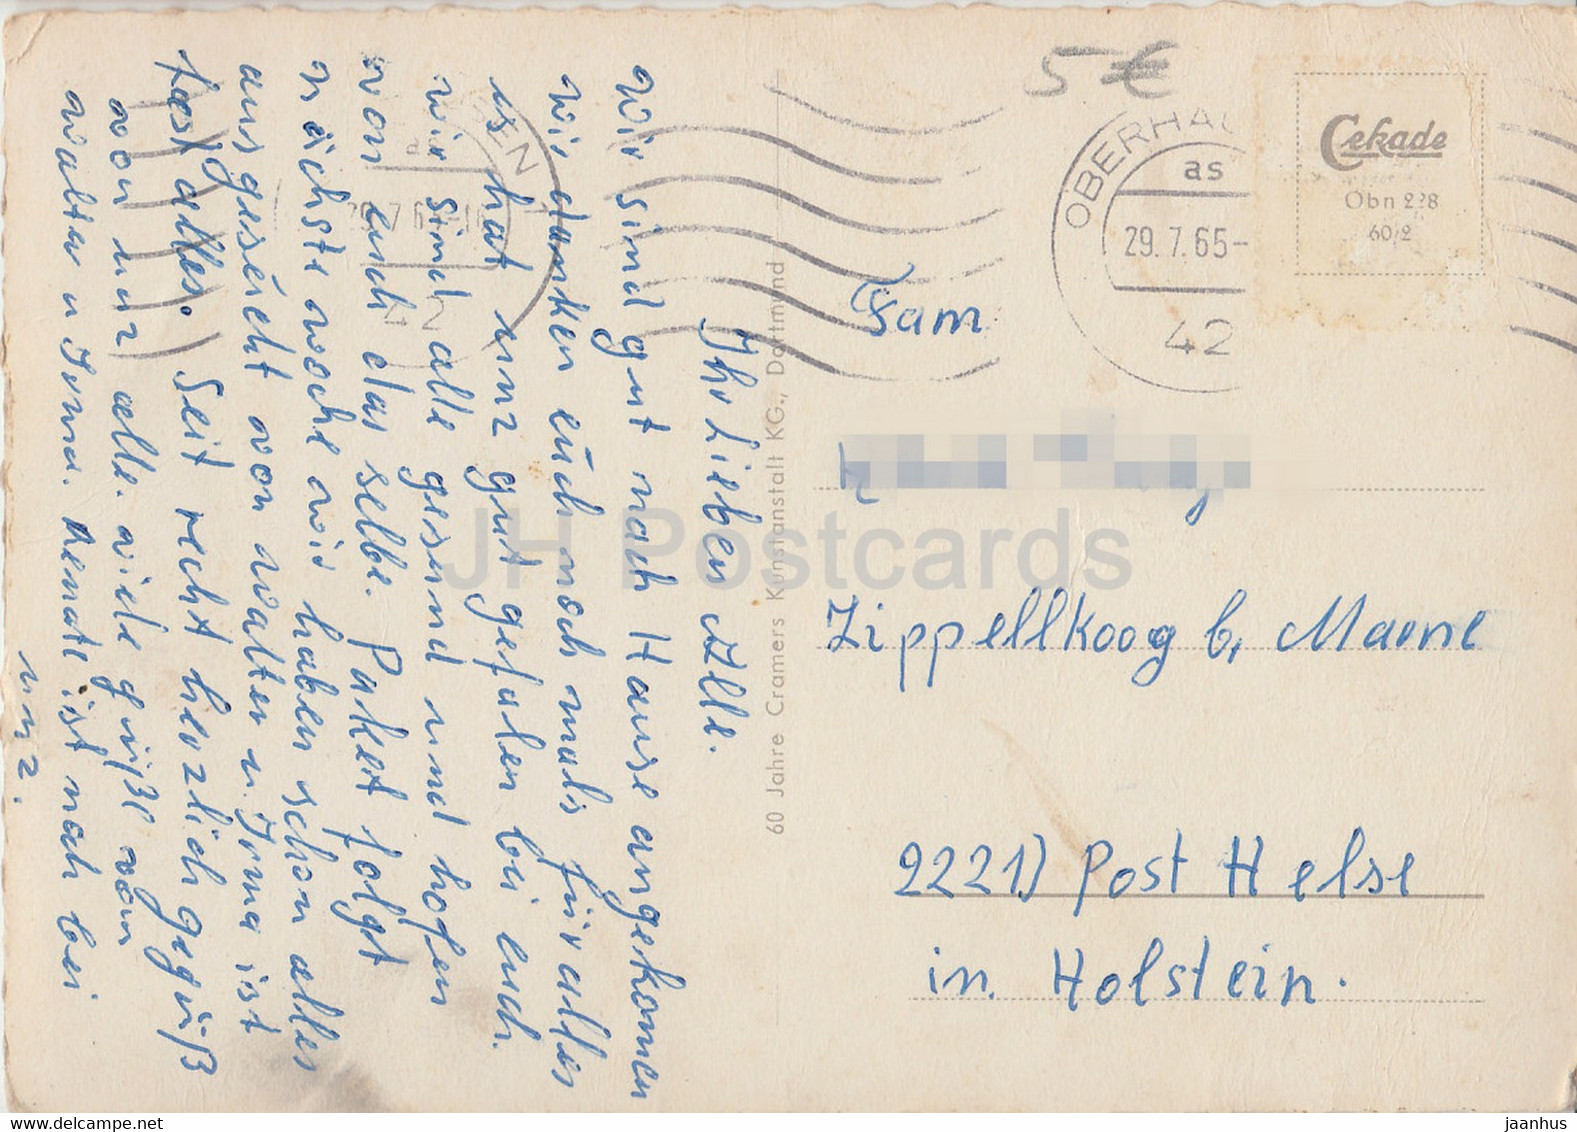 Ihr Lieben Alle.
wir sind gut nach Hause angekomen
wir danken euch noch mals für alles
es hat unz gut gefalen bei euch.
wir sind alle gesund und hofen
von euch das selbe. Paket folgt
nächste woche wir haben schon alles
ausgesucht von walter u. Irma ist
fast alles. Seit recht herzlich gegrüß
von unz alle. viele grüße von
walter u Irma. Renate ist noch bei
unz.
60 Jahre Cramers Kunstanstalt KG., Dortmund
5 €
OBERHAU
as
29.7.65-
42
SEN 1
29.7.6
42
Cekade
Obn 228
60/2
Fam
Zippellkoog b. Marne
2221) Post Helse
in Holstein.
JH Postcards
www.delcampe.net
jaanhus